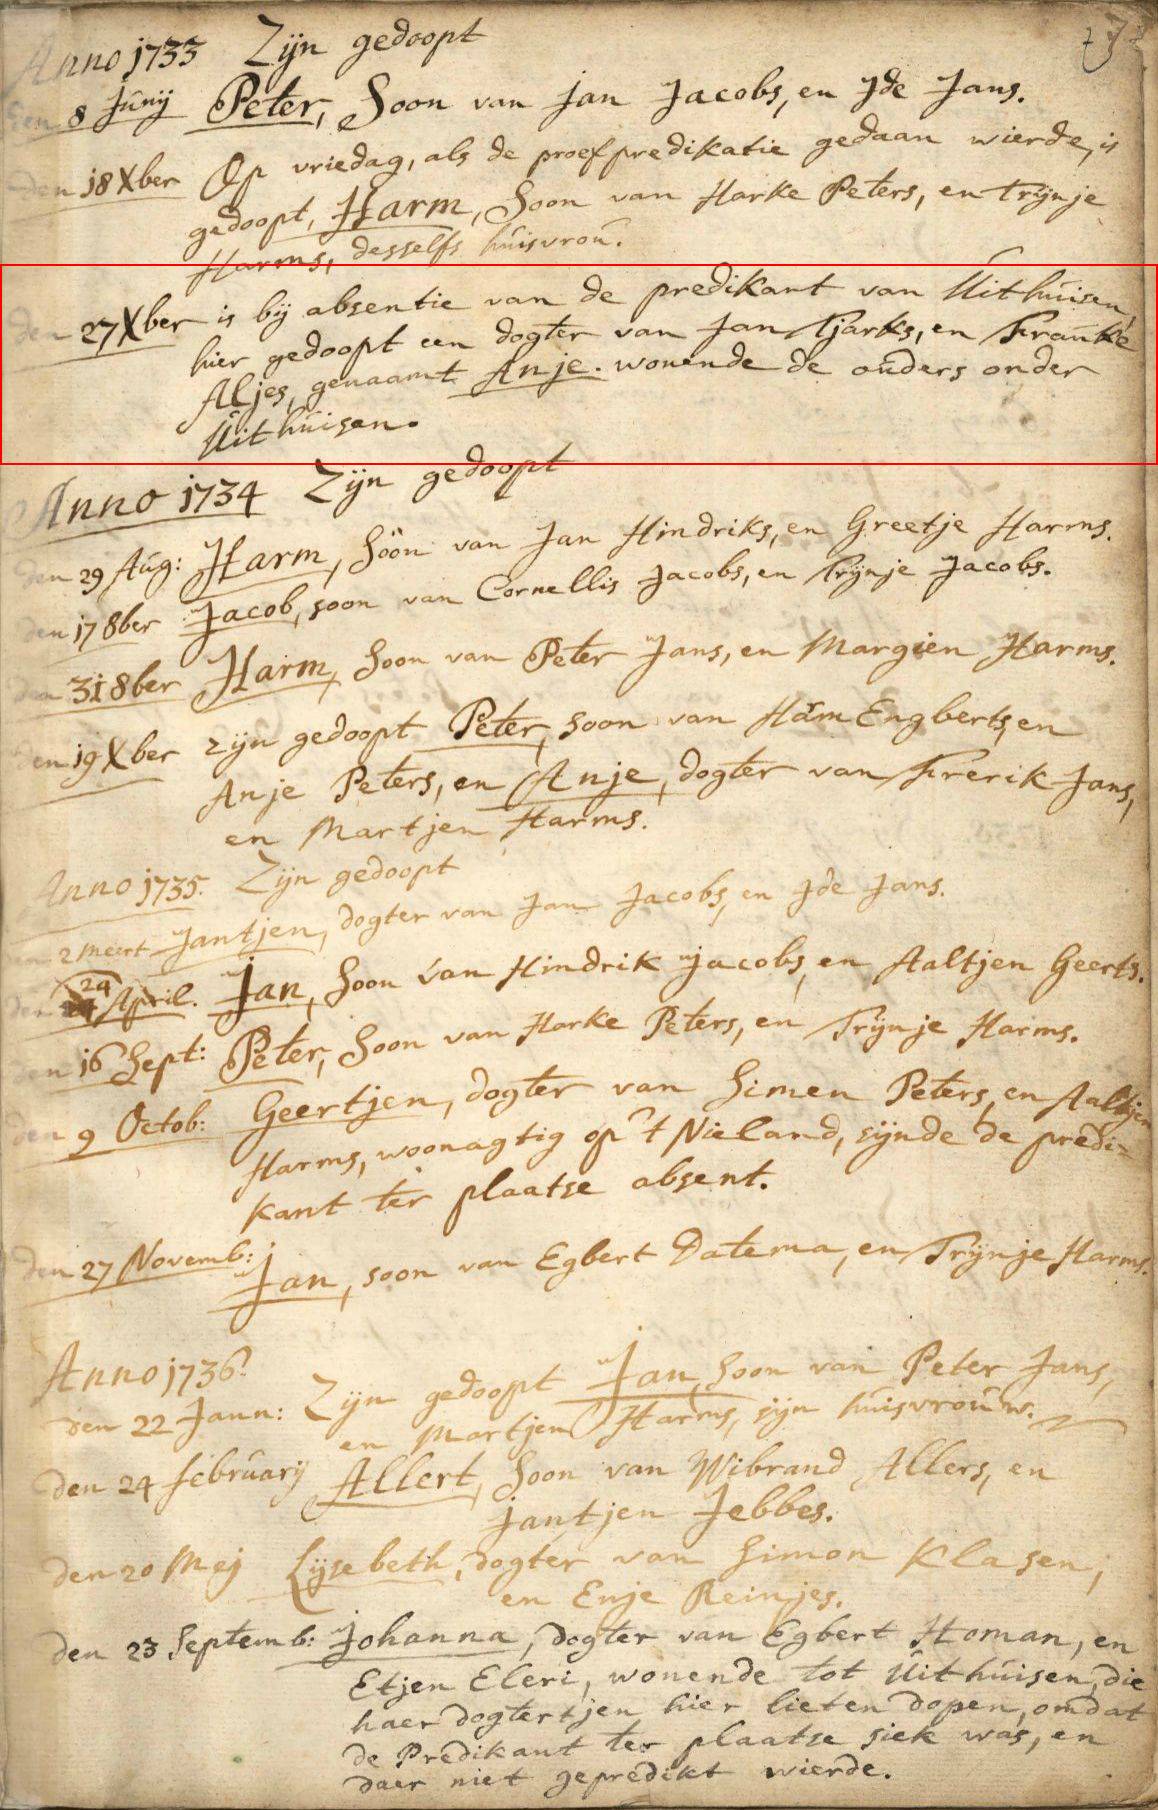 Anno 1733 Zijn gedoopt
den 8 Junij Peter, Soon van jan Jacobs, en Jde Jans.
den 18 Xber Op vriedag, als de proefpredikatie gedaan wierde, is
gedoopt, Harm, Soon van Harke Peters, en Trijnje
Harms, desselfs huisvrou.
den 27 Xber is bij absentie van de predikant van Uithuisen,
hier gedoopt een dogter van Jan Tjarks, en Frauke
Aljes, genaamt Anje. wonende de ouders onder
Uithuisen.
Anno 1734 Zijn gedoopt
den 29 Aug: Harm, Soon van Jan Hindriks, en Greetje Harms.
den 17 8ber Jacob, soon van Cornellis Jacobs, en Trijnje Jacobs.
den 31 8ber Harm, Soon van Peter Jans, en Margien Harms.
den 19 Xber zijn gedoopt Peter, soon van Harm Engberts, en
Anje Peters, en Anje, dogter van Frerik Jans,
en Martjen Harms.
Anno 1735. Zijn gedoopt
den 2 meert Jantjen, dogter van Jan Jacobs, en Jde Jans.
den 24 April. Jan, Soon van Hindrik Jacobs, en Aaltjen Geerts.
den 16 Sept: Peter, Soon van Harke Peters, en Trijnje Harms.
den 9 Octob: Geertjen, dogter van Simen Peters, en Aaltjen
Harms, woonagtig op 't Nieland, sijnde de predi=
kant ter plaatse absent.
den 27 Novemb: Jan, soon van Egbert Datema, en Trijnje Harms.
Anno 1736.
den 22 Jann: Zijn gedoopt Jan, Soon van Peter Jans,
en Martjen Harms, sijn huisvrouw.
den 24 februarij Allert, Soon van Wibrand Allers, en
jantjen Jebbes.
den 20 Mej Lijsebeth, dogter van Simon Klasen,
en Enje Reinjes.
den 23 Septemb: Johanna, dogter van Egbert Homan, en
Etjen Eleri, wonende tot Uithuisen, die
haer dogtertjen hier lieten dopen, omdat
de Predikant ter plaatse siek was, en
daer niet gepredikt wierde.